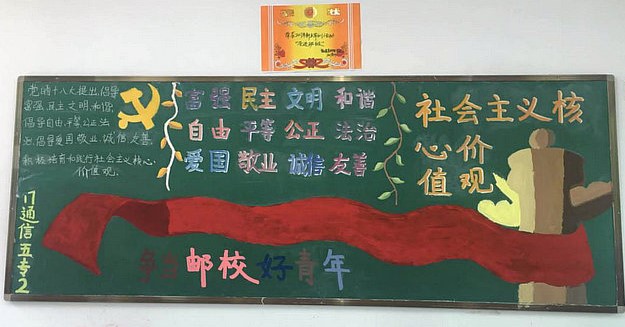 奖 状
党的十八大提出,倡导
富强、民主、文明、和谐
倡导自由、平等、公正、法
治,倡导爱国、敬业、诚信、友善,
积极培育和践行社会主义核心
价值观。
富强 民主 文明 和谐
自由 平等 公正 法治
爱国 敬业 诚信 友善
社会主义核
心价
值观
17通信五专2
争当邮校好青年